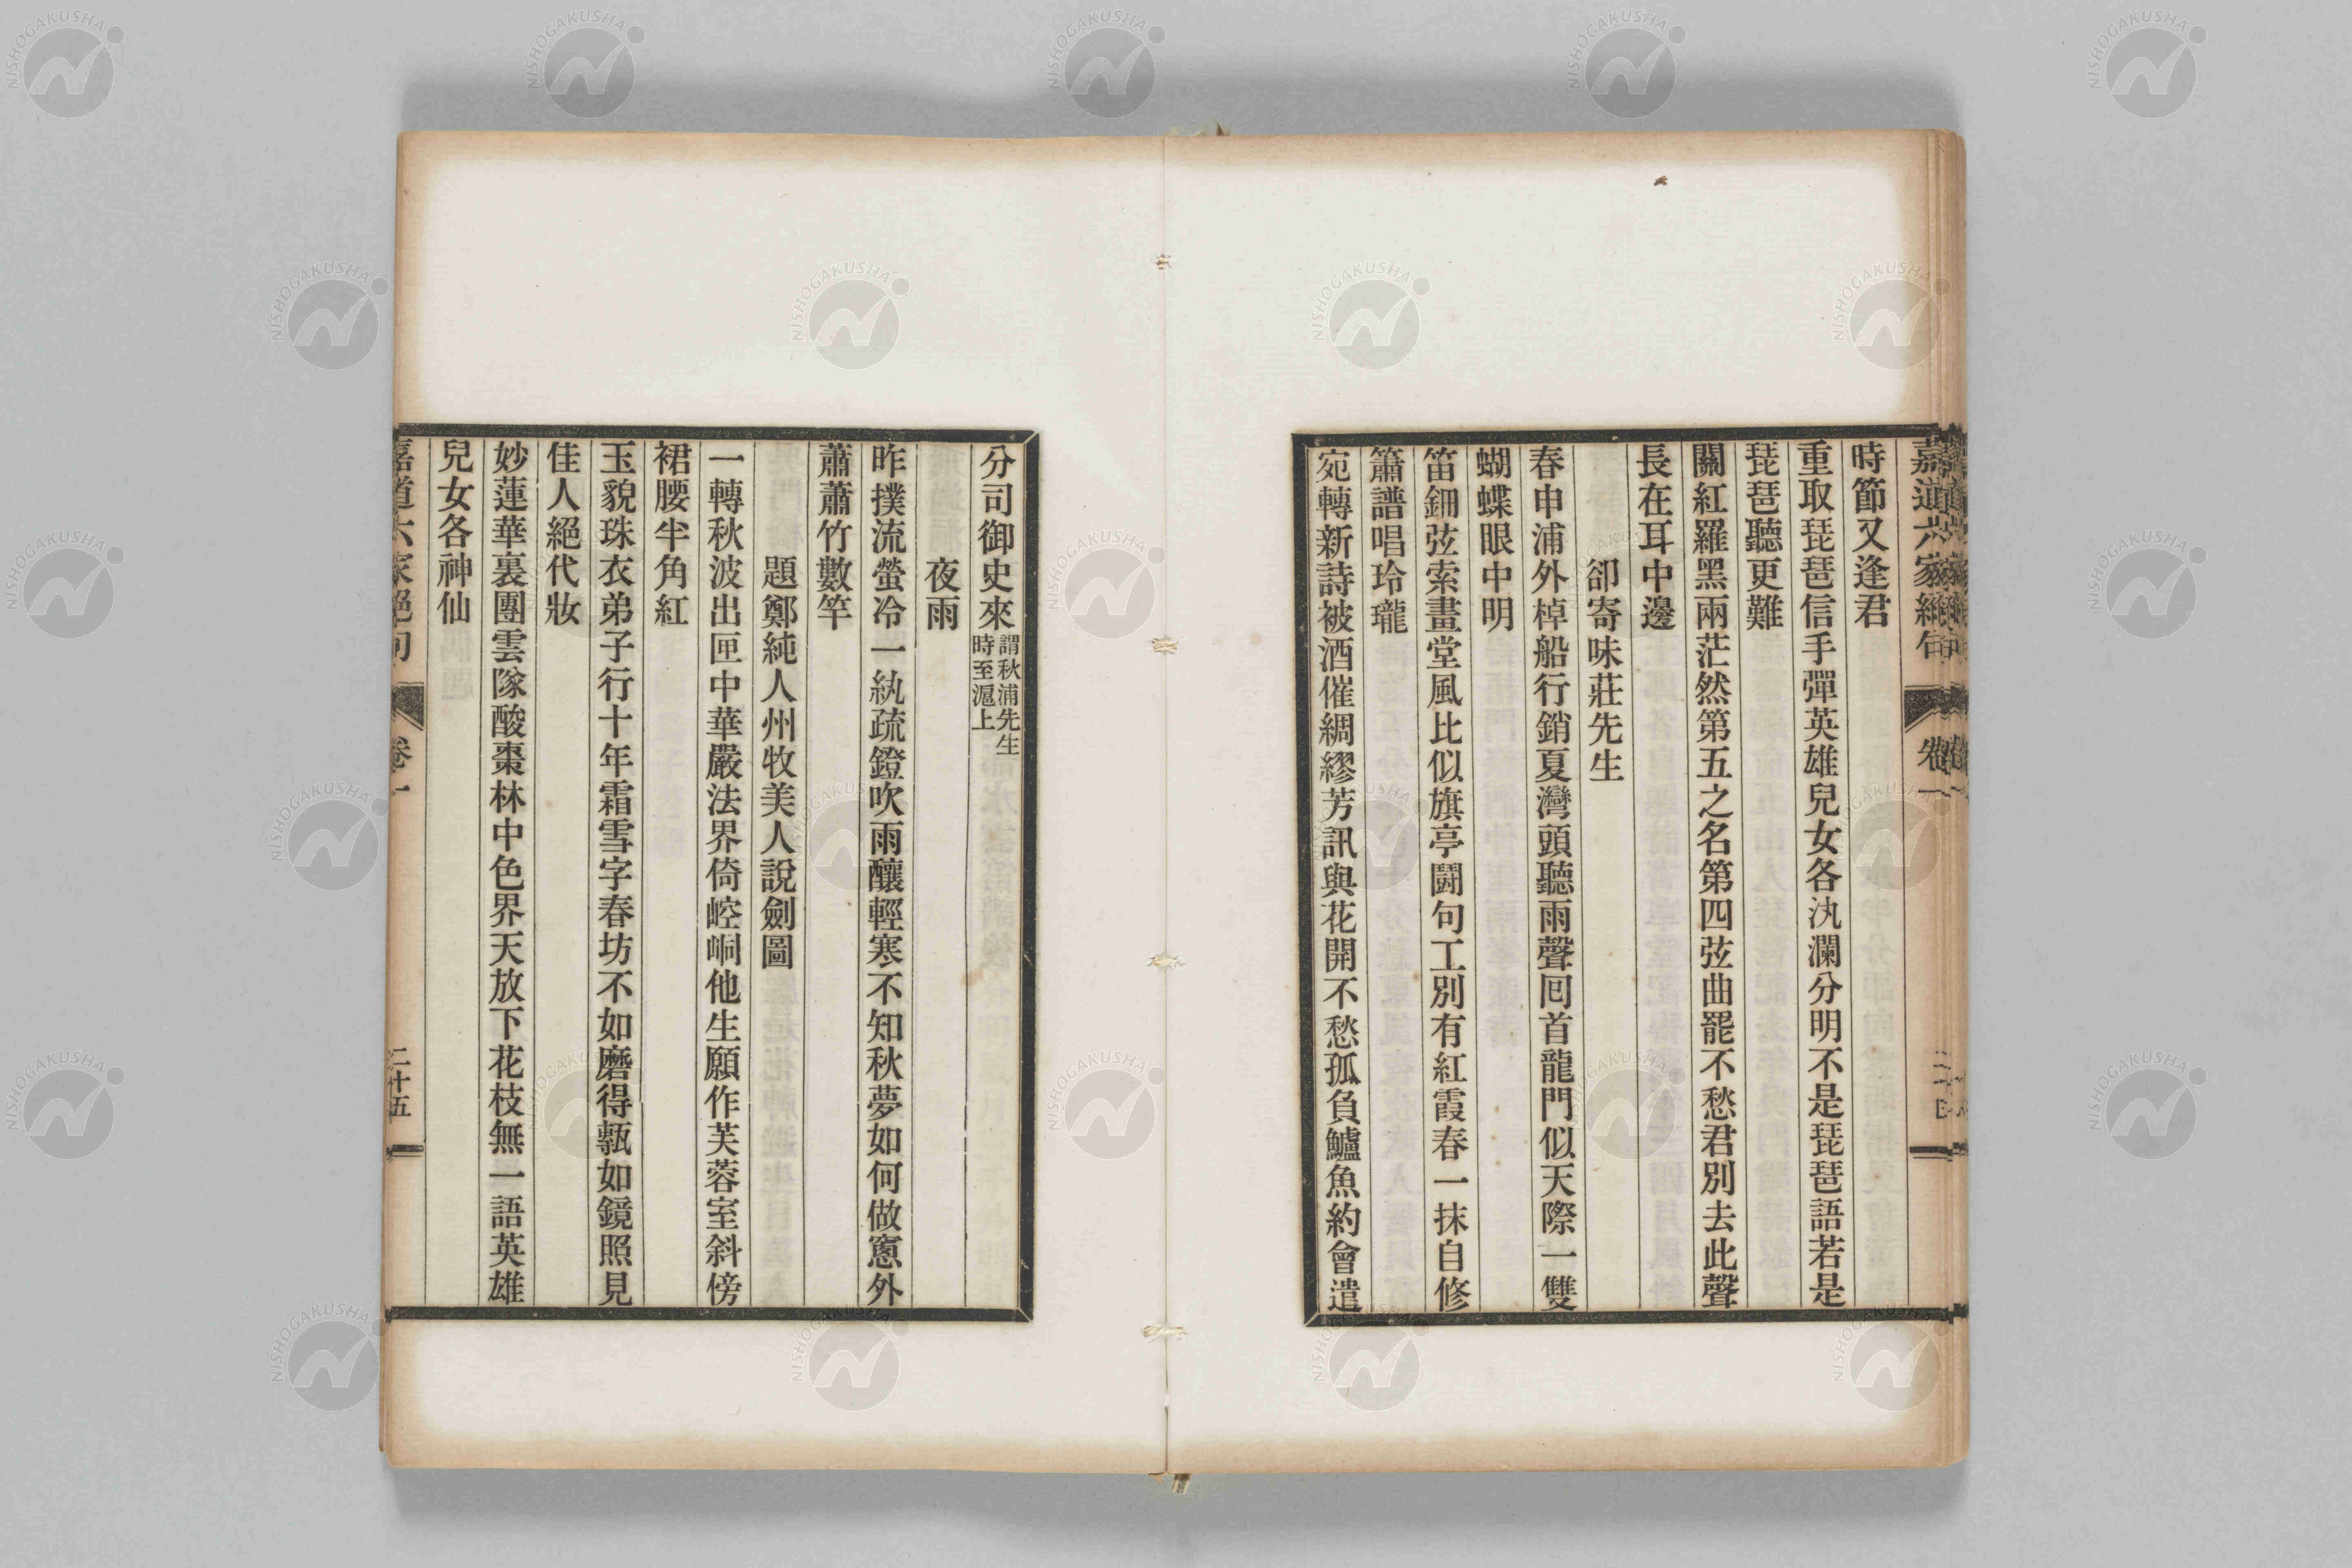 時節又逢君
重取琵琶信手彈英雄兒女各汍瀾分明不是琵琶語若是
琵琶聽更難
關紅羅黑兩茫然第五之名第四弦曲罷不愁君別去此聲
長在耳中邊
卻寄味莊先生
春申浦外棹船行銷夏灣頭聽雨聲囘首龍門似天際一雙
蝴蝶眼中明
笛鈿弦索畫堂風比似旗亭鬪句工別有紅霞春一抹自修
簫譜唱玲瓏
宛轉新詩被酒催綢繆芳訊與花開不愁孤負鱸魚約會遣
分司御史來
謂秋浦先生
時至滬上
夜雨
昨撲流螢冷一紈疏鐙吹雨釀輕寒不知秋夢如何做窻外
蕭蕭竹數竿
題鄭純人州牧美人說劍圖
一轉秋波出匣中華嚴法界倚崆峒他生願作芙蓉室斜傍
裙腰半角紅
玉貌珠衣弟子行十年霜雪字春坊不如磨得甎如鏡照見
佳人絕代妝
妙蓮華裏團雲隊酸棗林中色界天放下花枝無一語英雄
兒女各神仙
嘉道六家絕句
卷一
二十五
NISHOGAKUSHA